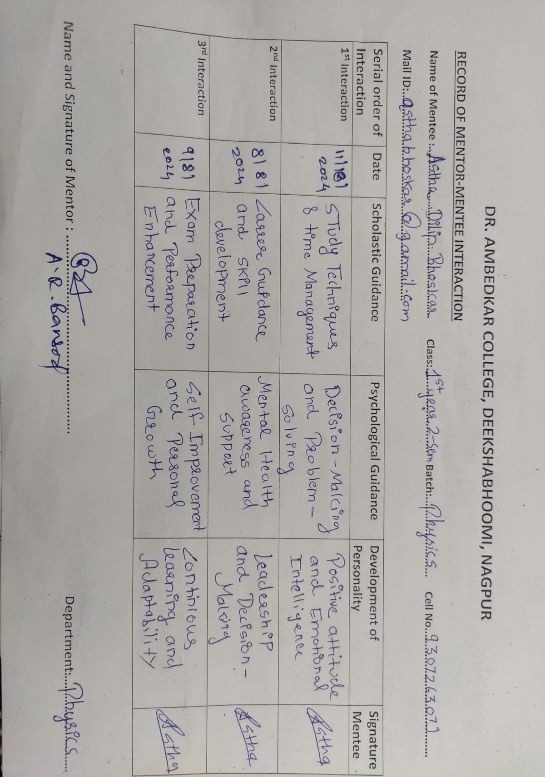 DR. AMBEDKAR COLLEGE, DEEKSHABHOOMI, NAGPUR
RECORD OF MENTOR-MENTEE INTERACTION
Name of Mentee :..Astha...Dilip..Bhaskar.. Class:..1st..year..2-sem Batch:..Physics... Cell No..9307263071.......
Mail ID:..asthabhaskar@gmail.com
Serial order of Interaction Date Scholastic Guidance Psychological Guidance Development of Personality Signature Mentee
1st Interaction 2024 Study Techniques & time Management Decision-Making and Problem-Solving Positive attitude and Emotional Intelligence Astha
2nd Interaction 8/8/2024 Career Guidance and skill development Mental Health awareness and Support Leadership and Decision-Making Astha
3rd Interaction 9/8/2024 Exam Preparation and Performance Enhancement Self-Improvement and Personal Growth Continious learning and Adaptability Astha
Name and Signature of Mentor : A.R.Bansod Department:..Physics....